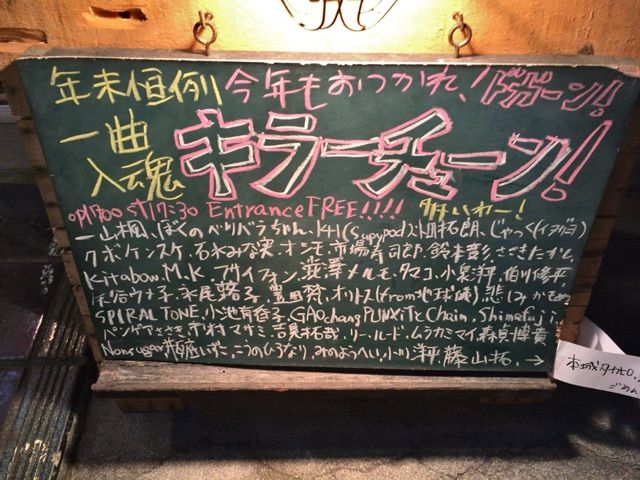 年末恒例 今年もおつかれ、ドガーン!
一曲入魂 キラーチューン!
op17:00 st17:30 Entrance FREE!!!! 多いわー!
一山楓、ぼくのペリペリラちゃん、K41(supypod)、小田拓朗、じゃっく(イヌガヨ)
クボケンスケ、石木みな実、オシモ、市場寿司郎、鈴木彰、ささきたかし
Kitabow、M.K、ブライフォン、滋澤メルモ、タマコ、小泉洋平、柏川修平
ウナ子、永尾蕗子、豊田梵、オリトス(from地球儀)、悲しみかもめ
SPIRAL TONE、小池有吾子、GAOchang PUNX、iTe Chain、Shimafuji、
パンゲアささき、市村マサミ、吉見拓哉、リールード、ムラカミマイ、森貞博貴
Nonsugar、いずこ、こうのひろなり、みのようへい、小川洋平、藤山拓、→
本城
ごめん